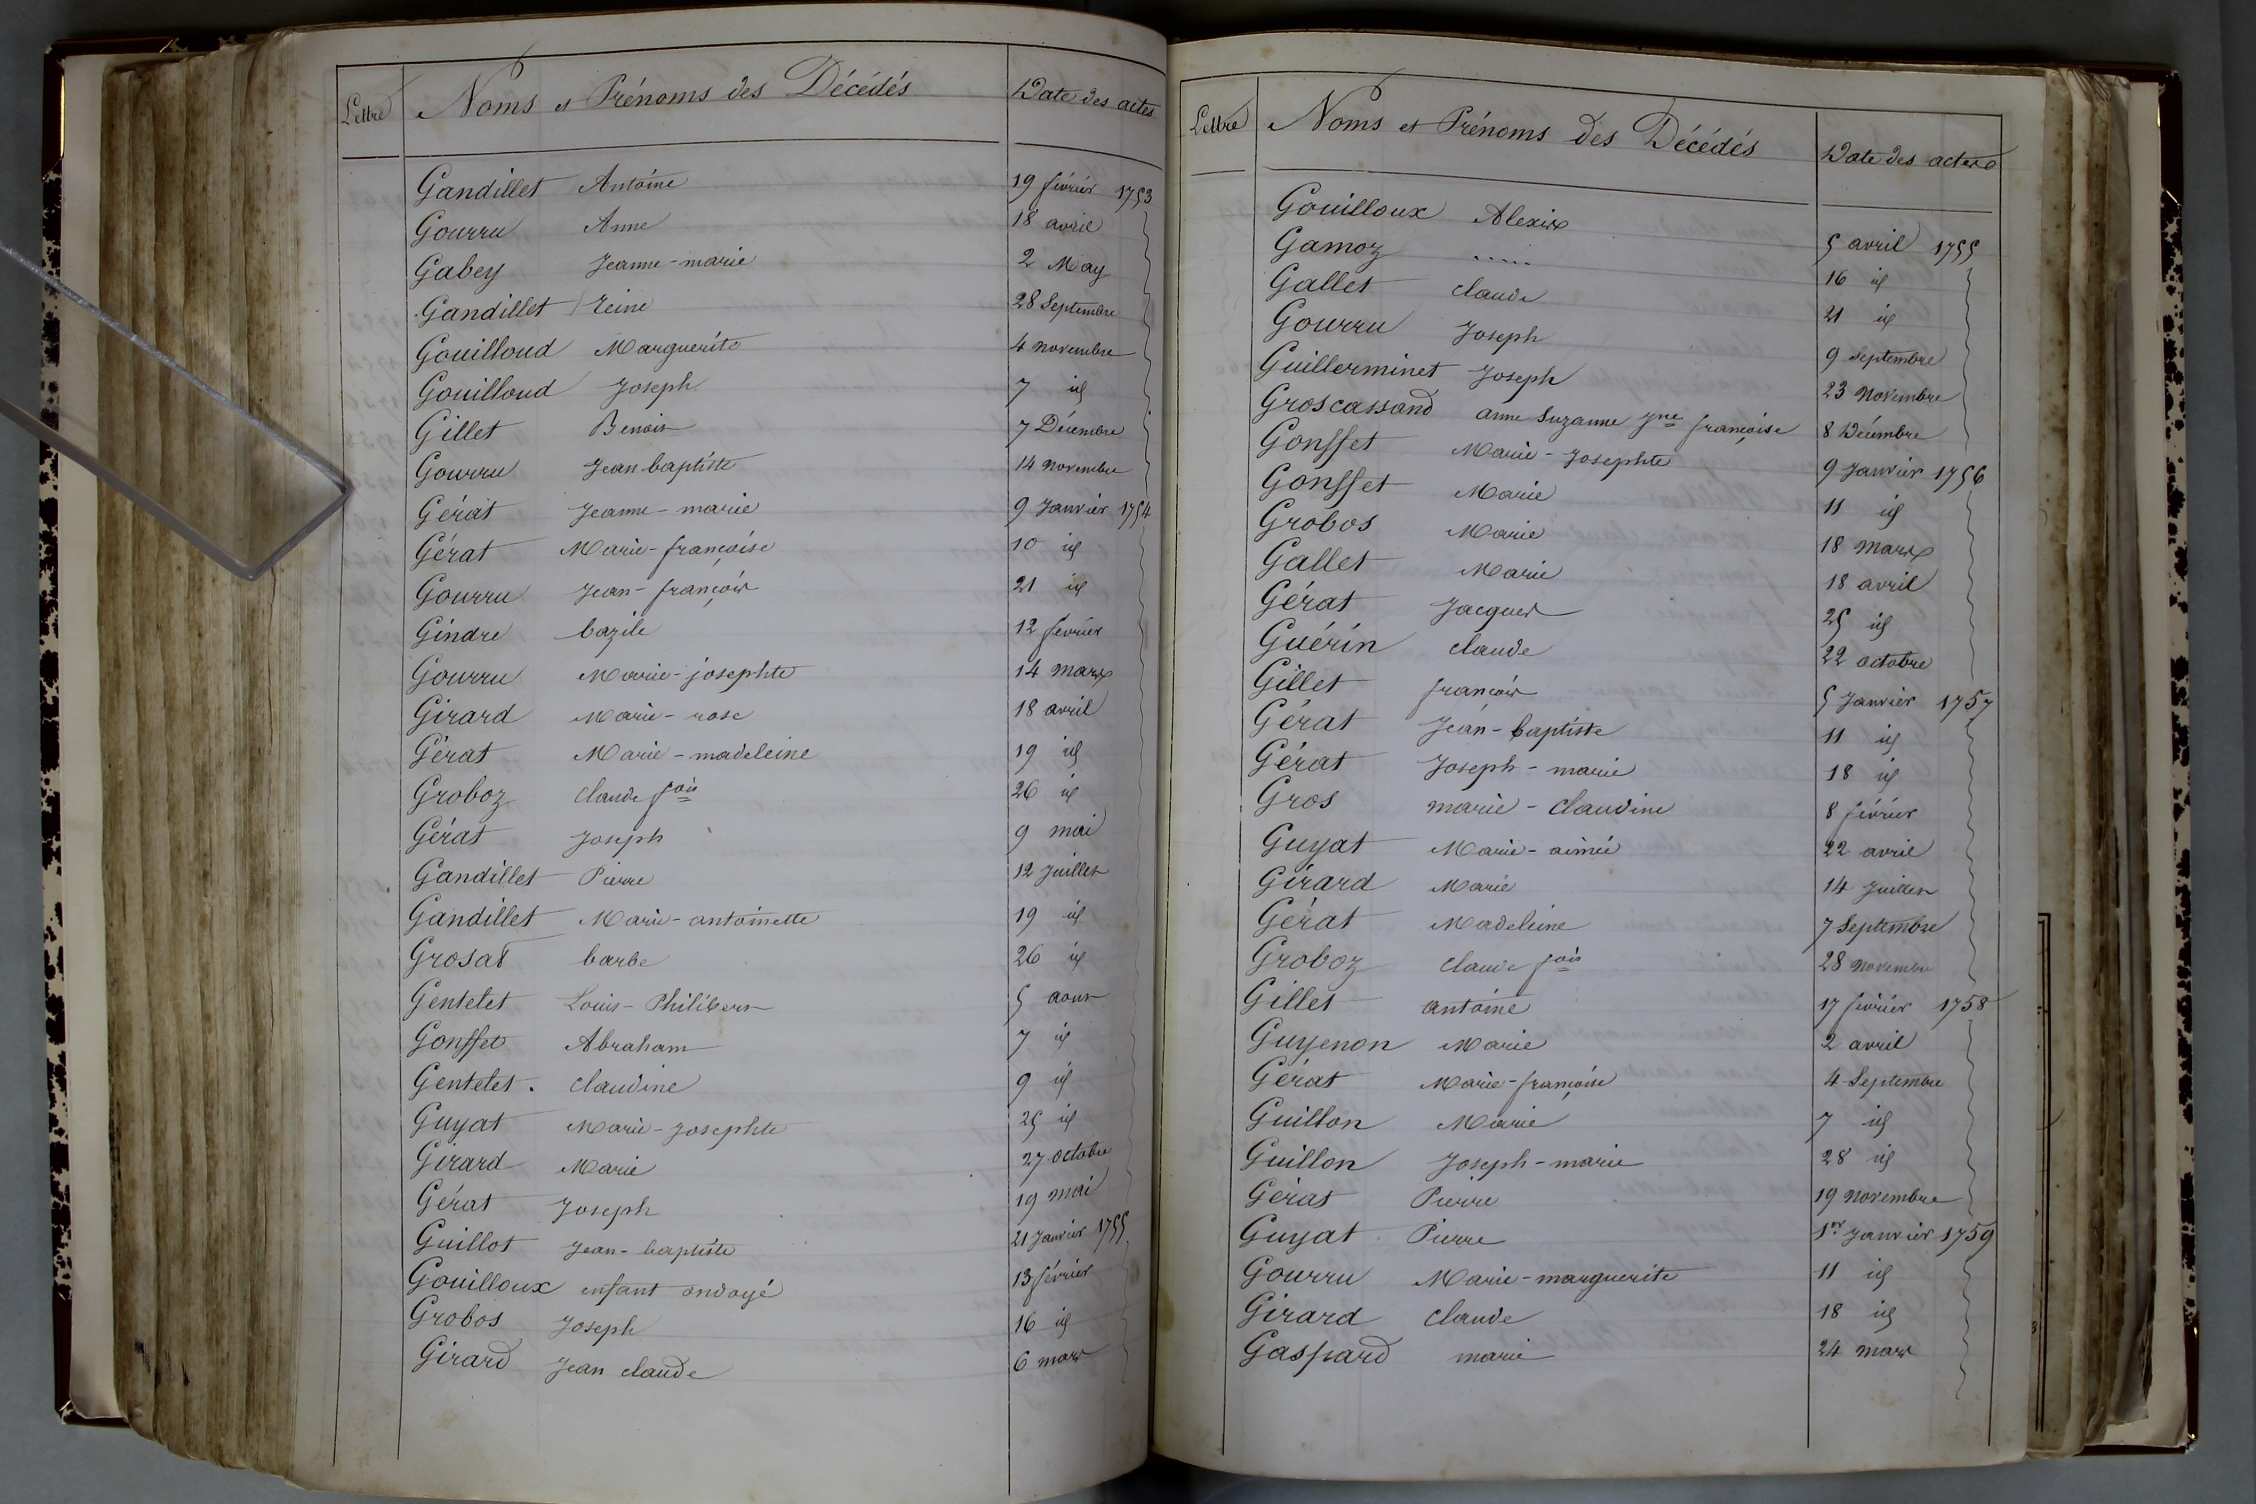 Lettre Noms et Prénoms des Décédés Date des actes
Gandillet Antoine 19 février 1753
Gourru Anne 18 avril
Gabey Jeanne-marie 2 May
Gandillet reine 28 Septembre
Gouilloud Marguerite 4 novembre
Gouilloud Joseph 7 id
Gillet Benoit 7 Décembre
Gourru Jean baptiste 14 novembre
Gérat Jeanne-marie 9 Janvier 1754
Gérat Marie-françoise 10 id
Gourru Jean-françois 21 id
Gindre bazile 12 février
Gourru Marie-josephte 14 mars
Girard Marie-rose 18 avril
Gérat Marie-madeleine 19 id
Groboz claude fois 26 id
Gérat Joseph 9 mai
Gandillet Pierre 12 Juillet
Gandillet Marie-antoinette 19 id
Grosat barbe 26 id
Gentelet Louis-Philibert 5 aout
Gonsset Abraham 7 id
Gentelet. claudine 9 id
Guyat Marie-Josephte 25 id
Girard Marie 27 octobre
Gérat Joseph 19 mai
Guillot Jean-baptiste 21 Janvier 1755
Gouilloux enfant ondoyé 13 février
Grobos Joseph 16 id
Girard Jean claude 6 mars
Lettre Noms et Prénoms des Décédés Date des actes
Gouilloux Alexis 5 avril 1755
Gamoz ..... 16 id
Gallet claude 21 id
Gourru Joseph 9 septembre
Guillerminet Joseph 23 Novembre
Groscassand anne Suzanne Jne françoise 8 Décembre
Gonsset Marie-Josephte 9 Janvier 1756
Gonsset Marie 11 id
Grobos Marie 18 mars
Gallet Marie 18 avril
Gérat Jacques 25 id
Guérin claude 22 octobre
Gillet françois 5 Janvier 1757
Gérat Jean-baptiste 11 id
Gérat Joseph-marie 18 id
Gros marie-Claudine 8 février
Guyat Marie-aimée 22 avril
Girard Marie 14 Juillet
Gérat Madeleine 7 Septembre
Groboz claude fois 28 novembre
Gillet antoine 17 février 1758
Guyenon Marie 2 avril
Gérat Marie-françoise 4 Septembre
Guillon Marie 7 id
Guillon Joseph-marie 28 id
Gérat Pierre 19 novembre
Guyat Pierre 1er Janvier 1759
Gourru Marie-marguerite 11 id
Girard Claude 18 id
Gaspard marie 24 mars